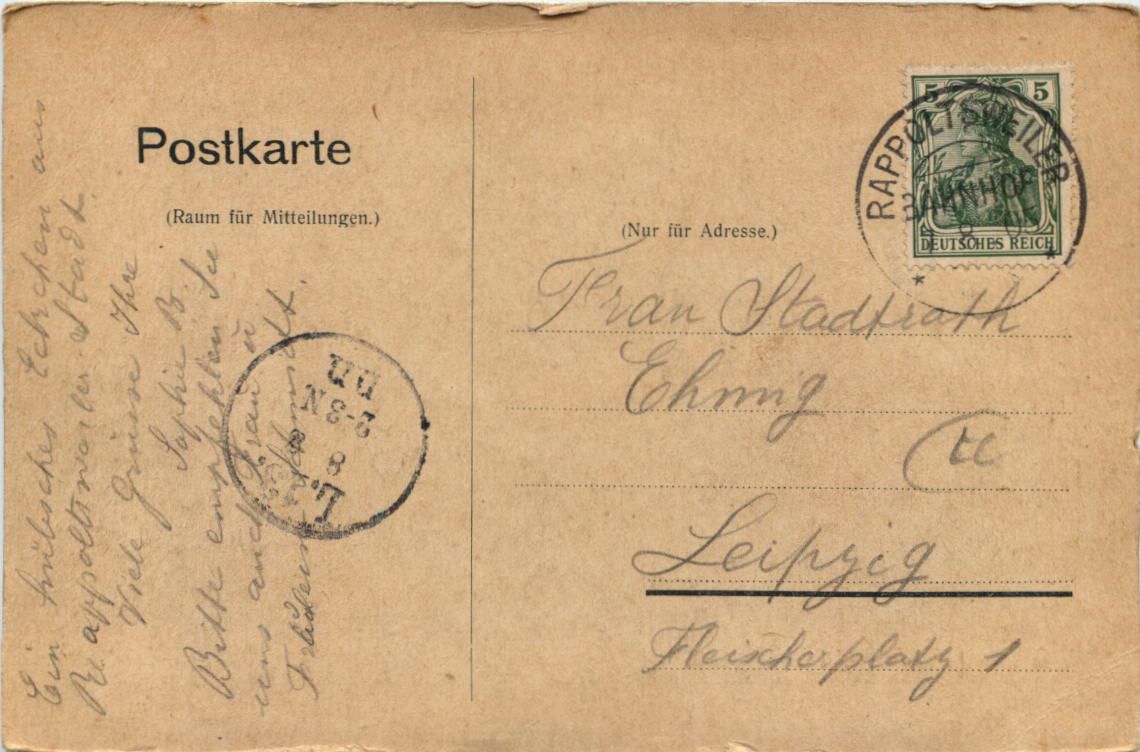 Postkarte
(Raum für Mitteilungen.)
Ein hübsches Eckchen aus
Rappoltsweiler Stadt.
Viele Grüsse Ihre
Sophie B.
Bitte empfehlen Sie
uns auch Frau u
Schmidt.
(Nur für Adresse.)
5 5
DEUTSCHES REICH
RAPPOLTSWEILER
BAHNHOF
Frau Stadtrath
Ehmig
Leipzig
Fleischerplatz 1
L.
8 8
2-3N